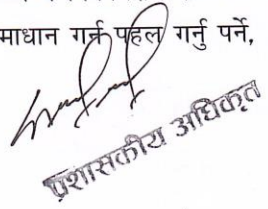 माधान गर्न पहल गर्नु पर्ने,
प्रशासकीय अधिकृत